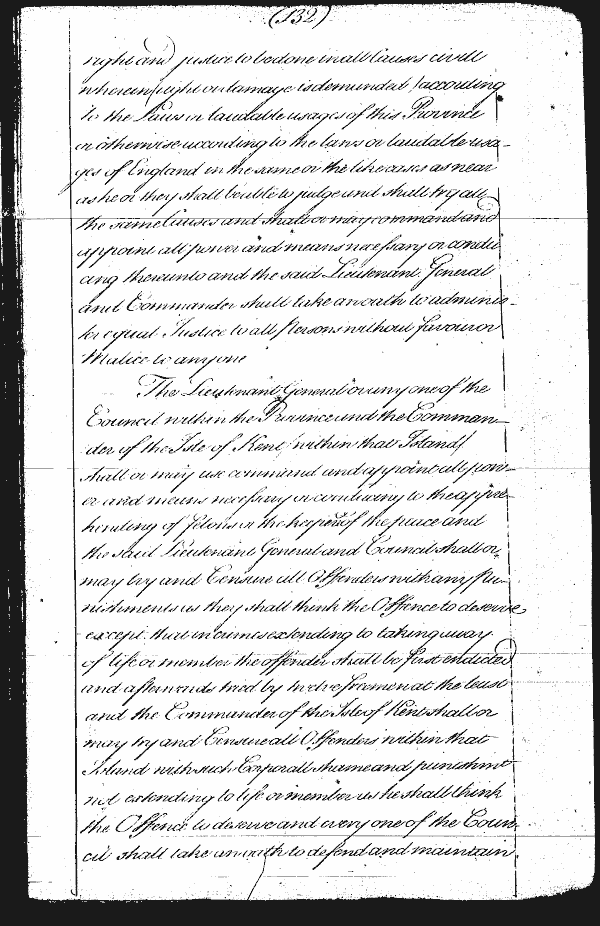 (132)
right and justice to be done in all Causes civill
wherein right or damage is demanded /according
to the Laws or laudable usages of this Province
or otherwise according to the laws or laudable usa-
ges of England in the same or the like cases as near
as he or they shall be able to judge and shall try all
the same Causes and shall or may command and
appoint all power and means necessary or conduc
ing thereunto and the said Lieutenant General
and Commander shall take an oath to adminis-
ter equal Justice to all Persons without favour or
Malice to any one
The Lieutenant General or any one of the
Council within the Province and the Comman-
der of the Isle of Kent /within that Island/
shall or may use command and appoint all pow-
er and means necessary or conducing to the appre-
hending of felons or the keeping of the peace and
the said Lieutenant General and Council shall or
may try and Censure all Offenders with any Pu-
nishments as they shall think the Offence to deserve
except that in causes extending to taking away
of life or member the offender shall be first endicted
and afterwards tried by twelve freemen at the least
and the Commander of the Isle of Kent shall or
may try and Censure all Offenders within that
Island with such Corporall shame and punishmt
not extending to life or member as he shall think
the Offence to deserve and every one of the Coun-
cil shall take an oath to defend and maintain